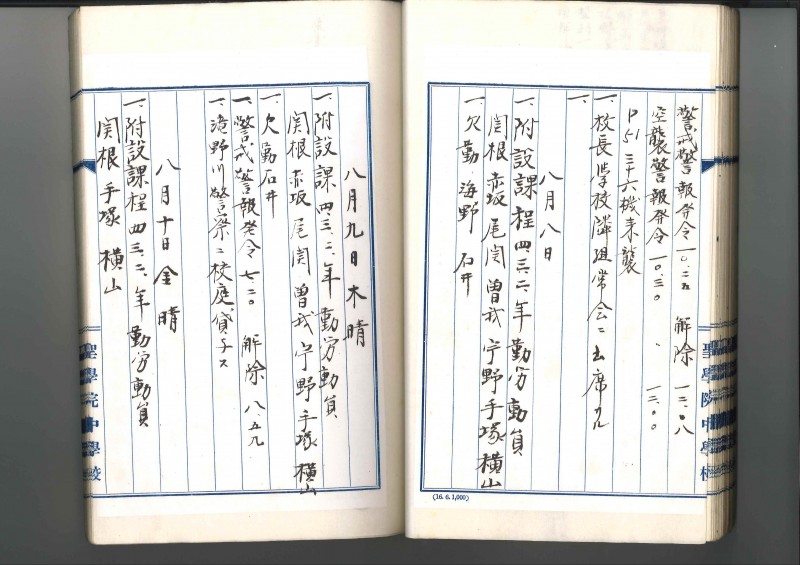 警戒警報発令 一〇.二五 解除 一二.〇八
空襲警報発令 一〇.三〇 〃 一二.〇〇
P51 三十六機来襲
一、校長学校隣組常会ニ出席サル
一、
八月八日
一、附設課程四、三、二、年勤労動員
関根 赤坂 尾関 曽我 宇野 手塚 横山
一、欠勤 海野 石井
八月九日 木 晴
一、附設課四、三、二、年勤労動員
関根 赤坂 尾関 曽我 宇野 手塚 横山
一、欠勤 石井
一、警戒警報発令 七.二〇 解除 八.五九
一、滝野川警察ニ校庭貸与ス
八月十日 金 晴
一、附設課程四、三、二、年勤労動員
関根 手塚 横山
聖學院中學校
聖學院中學校
(16. 6. 1,000)